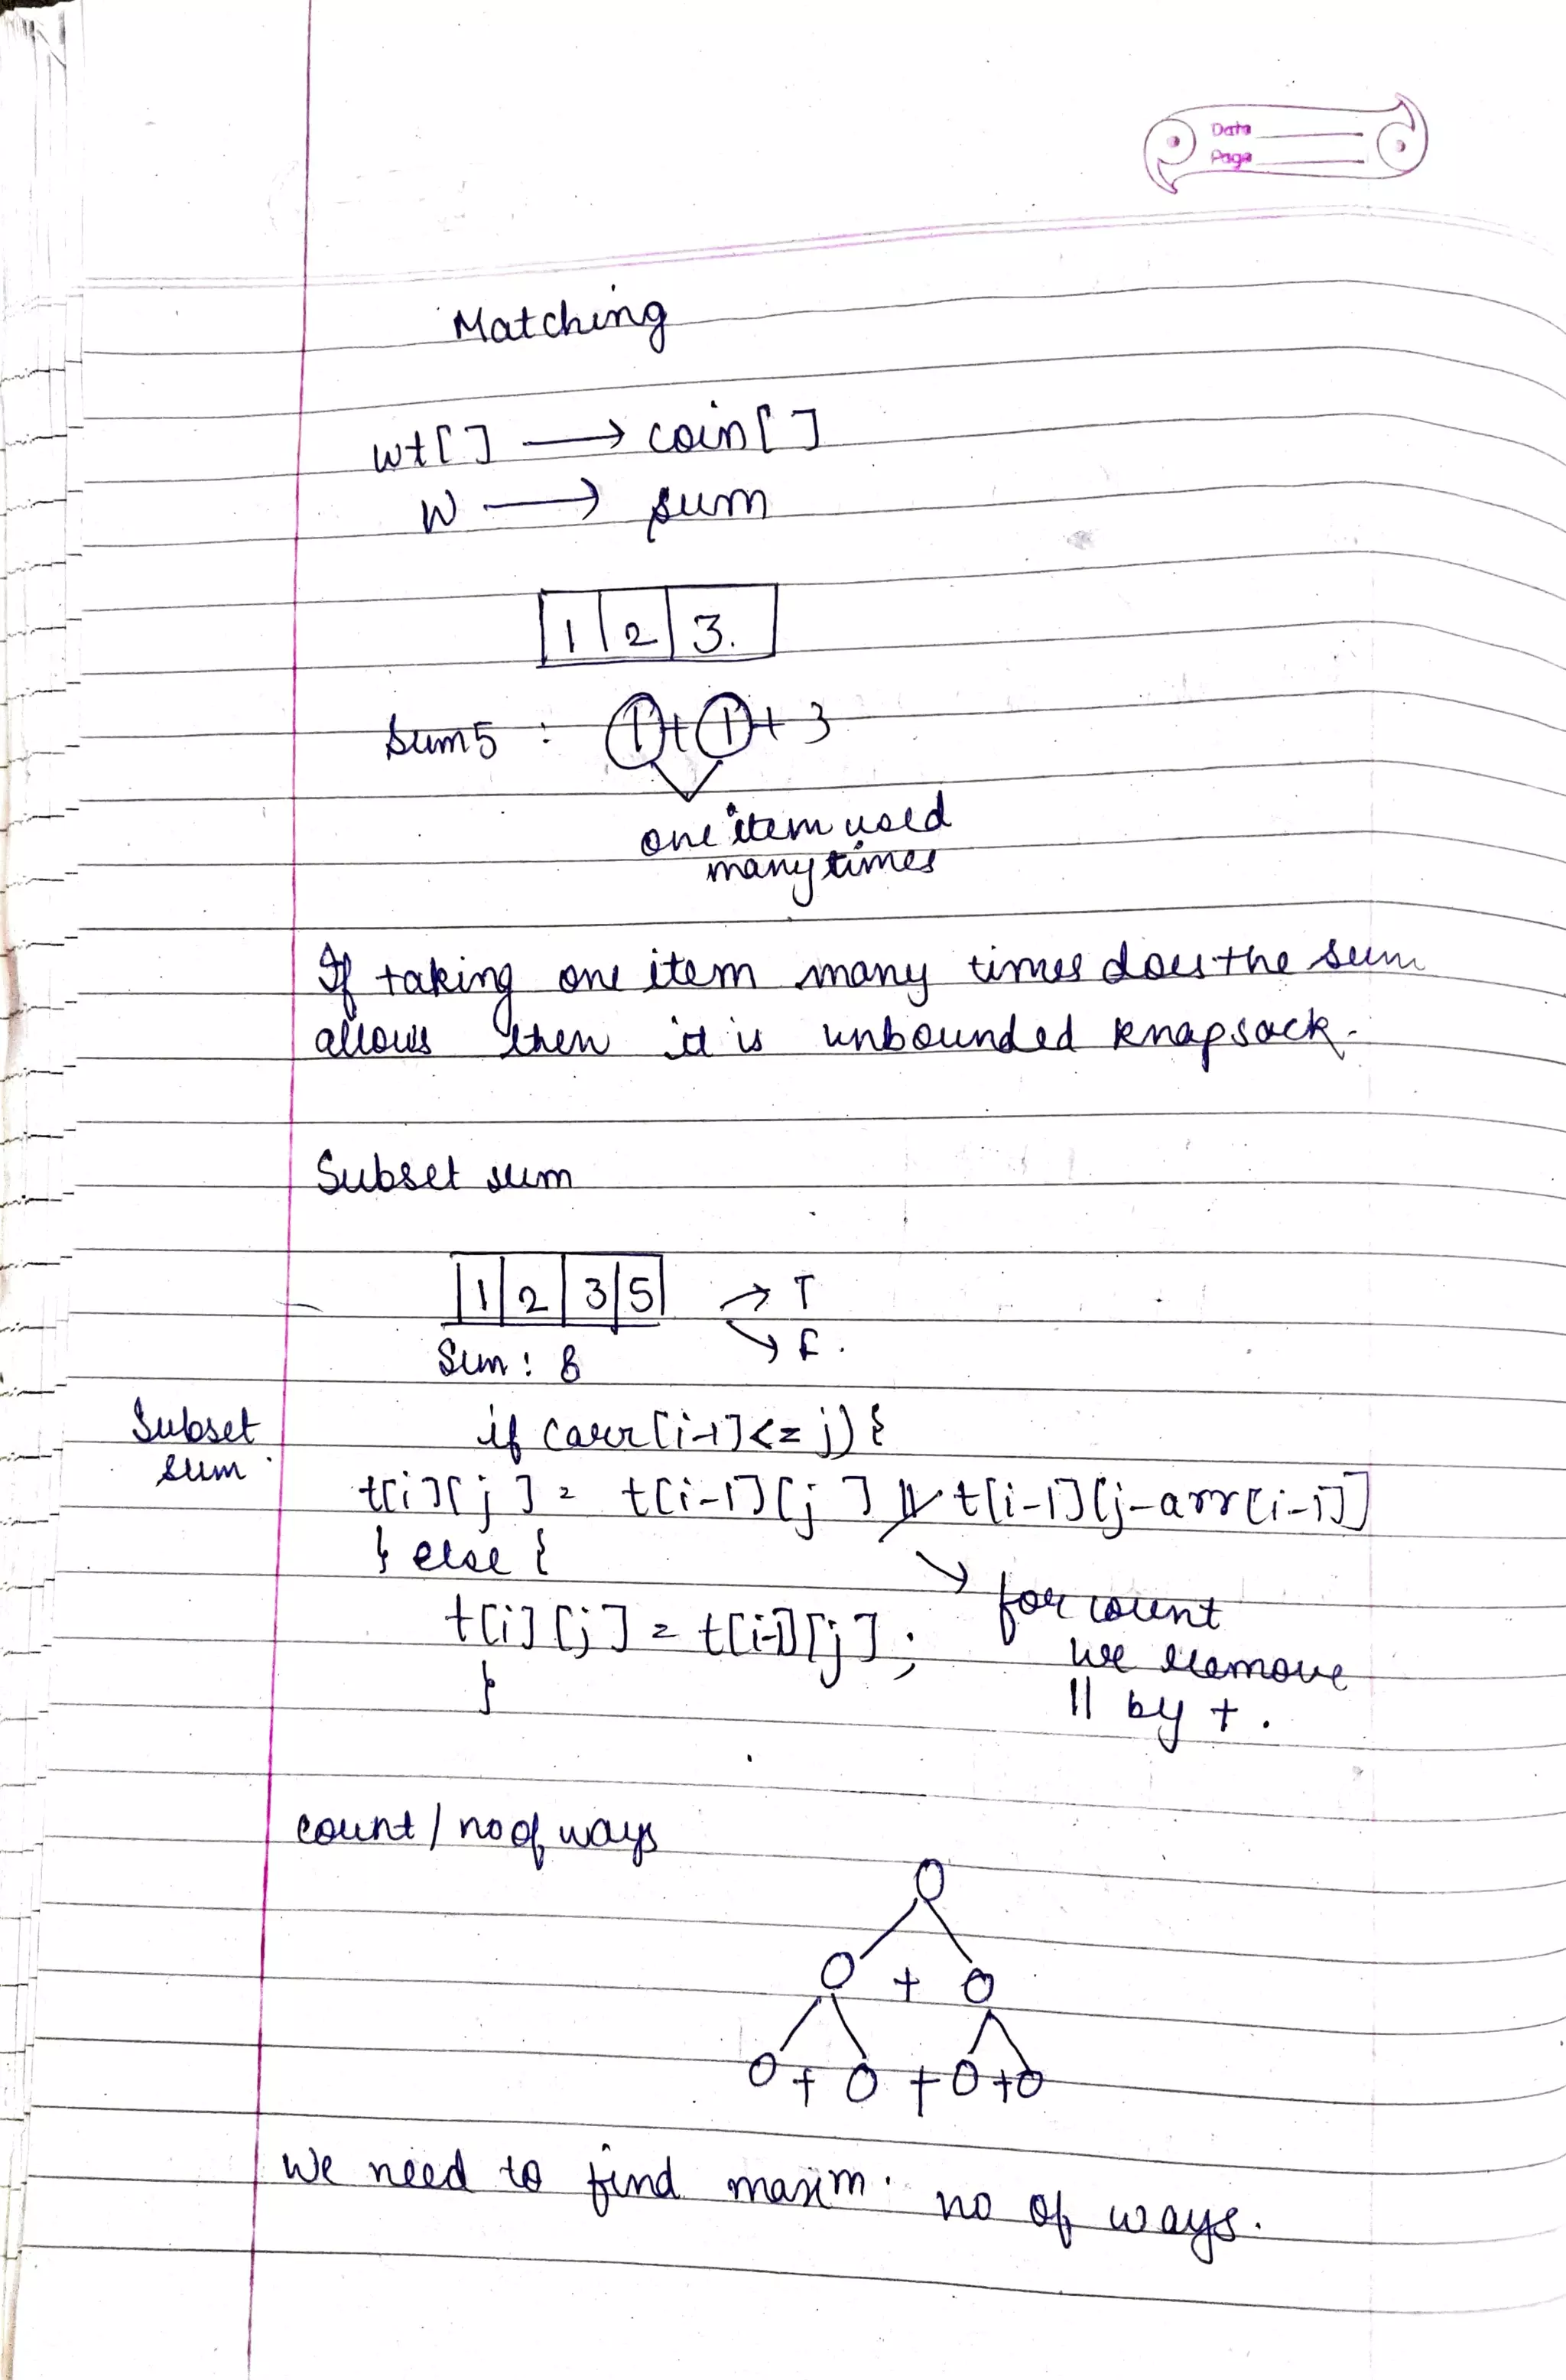 Date
Page
Matching
wt[ ] → coin[ ]
W → sum
1 2 3.
Sum5 : 1 + 1 + 3
one item used
many times
If taking one item many times does the sum
allows then it is unbounded knapsack.
Subset sum
1 2 3 5 → T
Sum : 8 → F.
Subset
sum
if (arr[i-1] <= j) {
t[i][j] = t[i-1][j] || t[i-1][j-arr[i-1]]
} else {
t[i][j] = t[i-1][j] ;
}
→ for count
we remove
|| by + .
count / no of ways
O
O + O
O + O + O + O
We need to find maxim. no of ways.